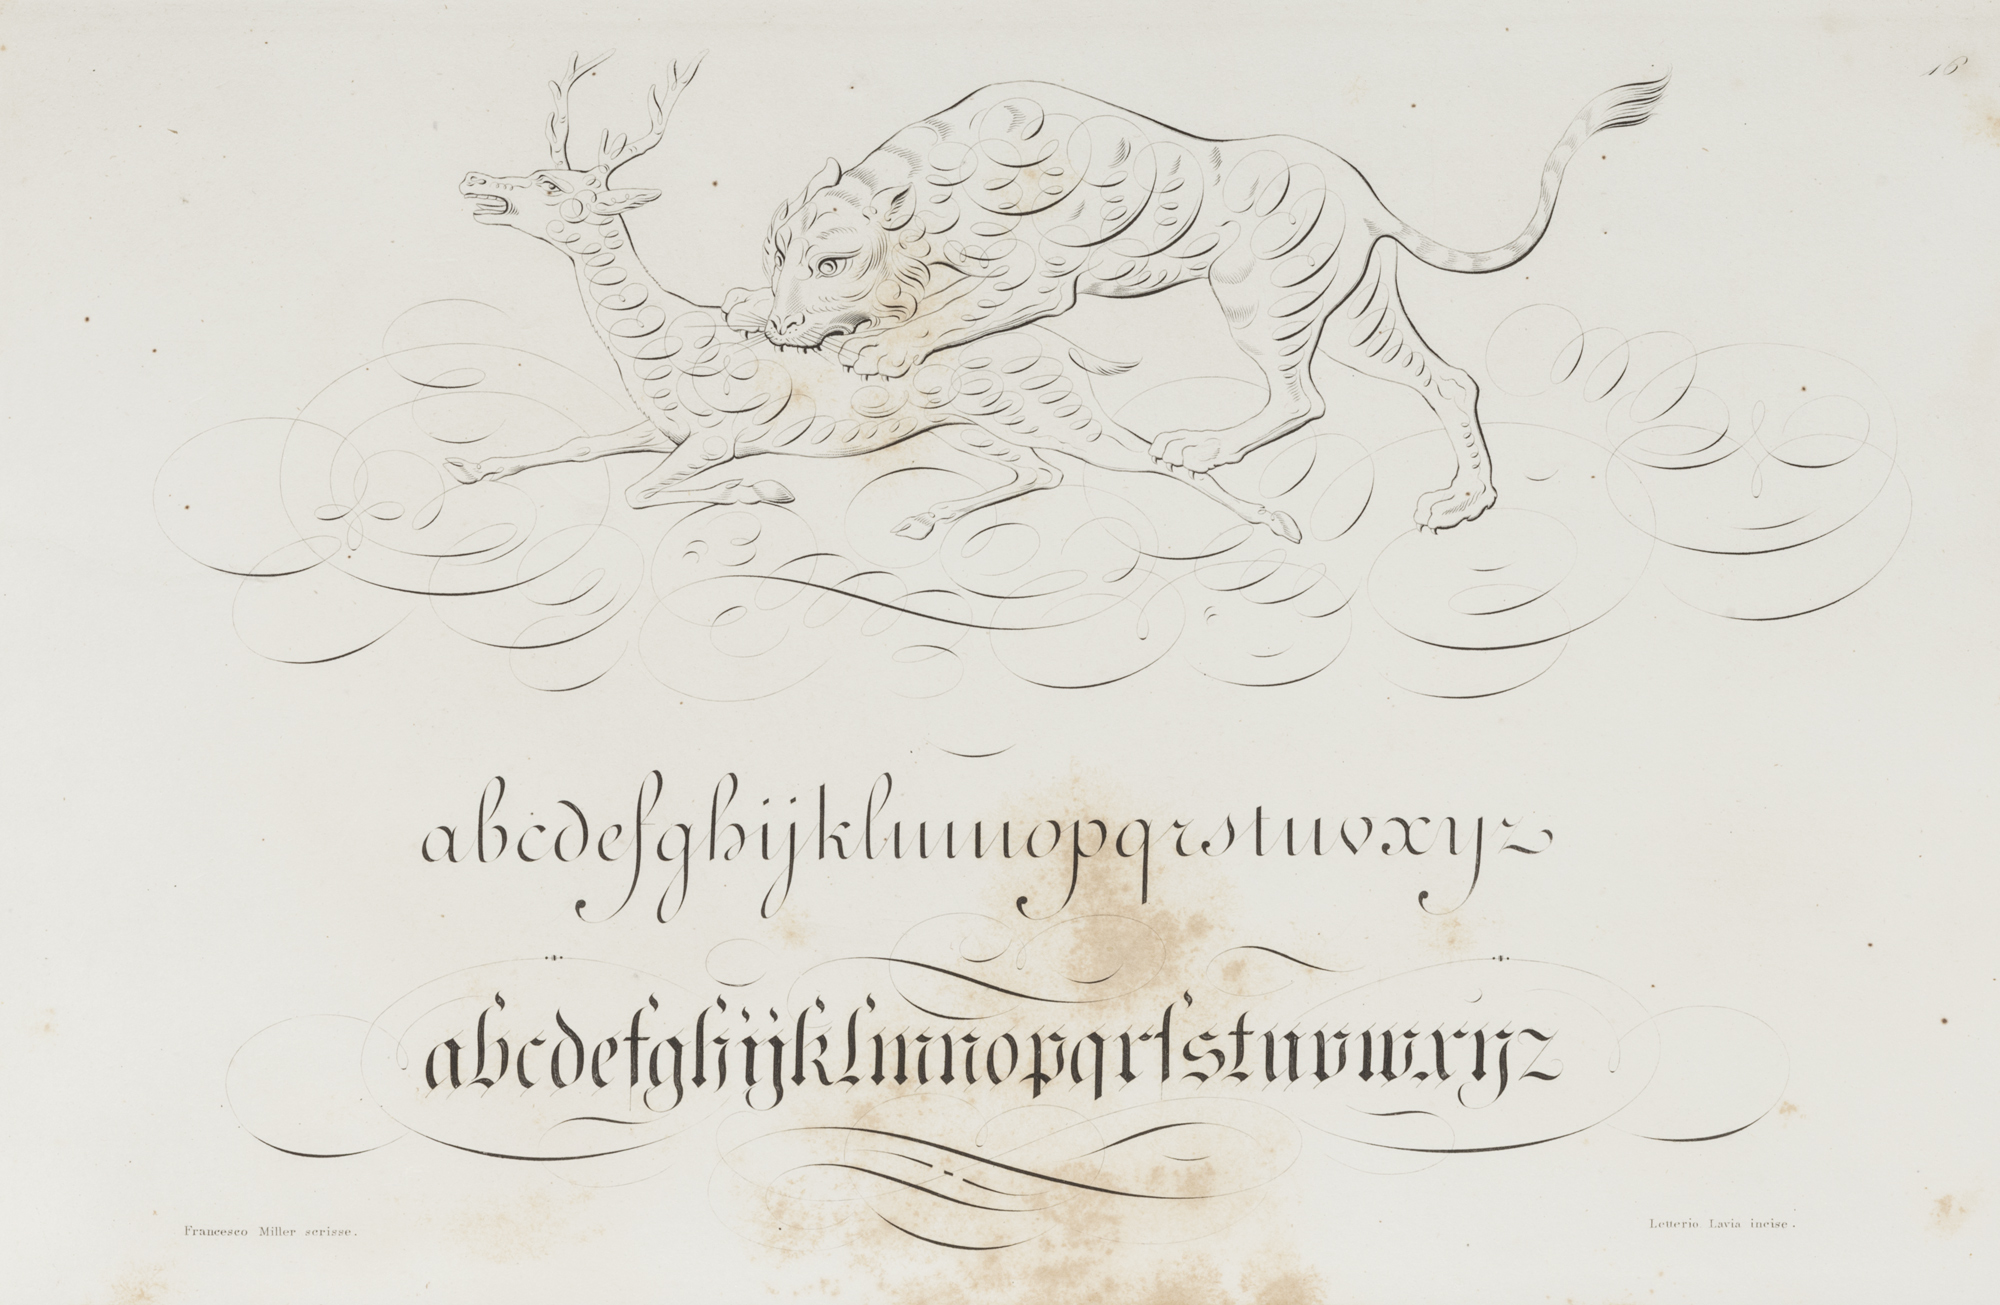 abcdefghijklmnopqrstuvxyz
abcdefghijklmnopqrſstuvwxyz
Francesco Miller scrisse.
Letterio Lavia incise.